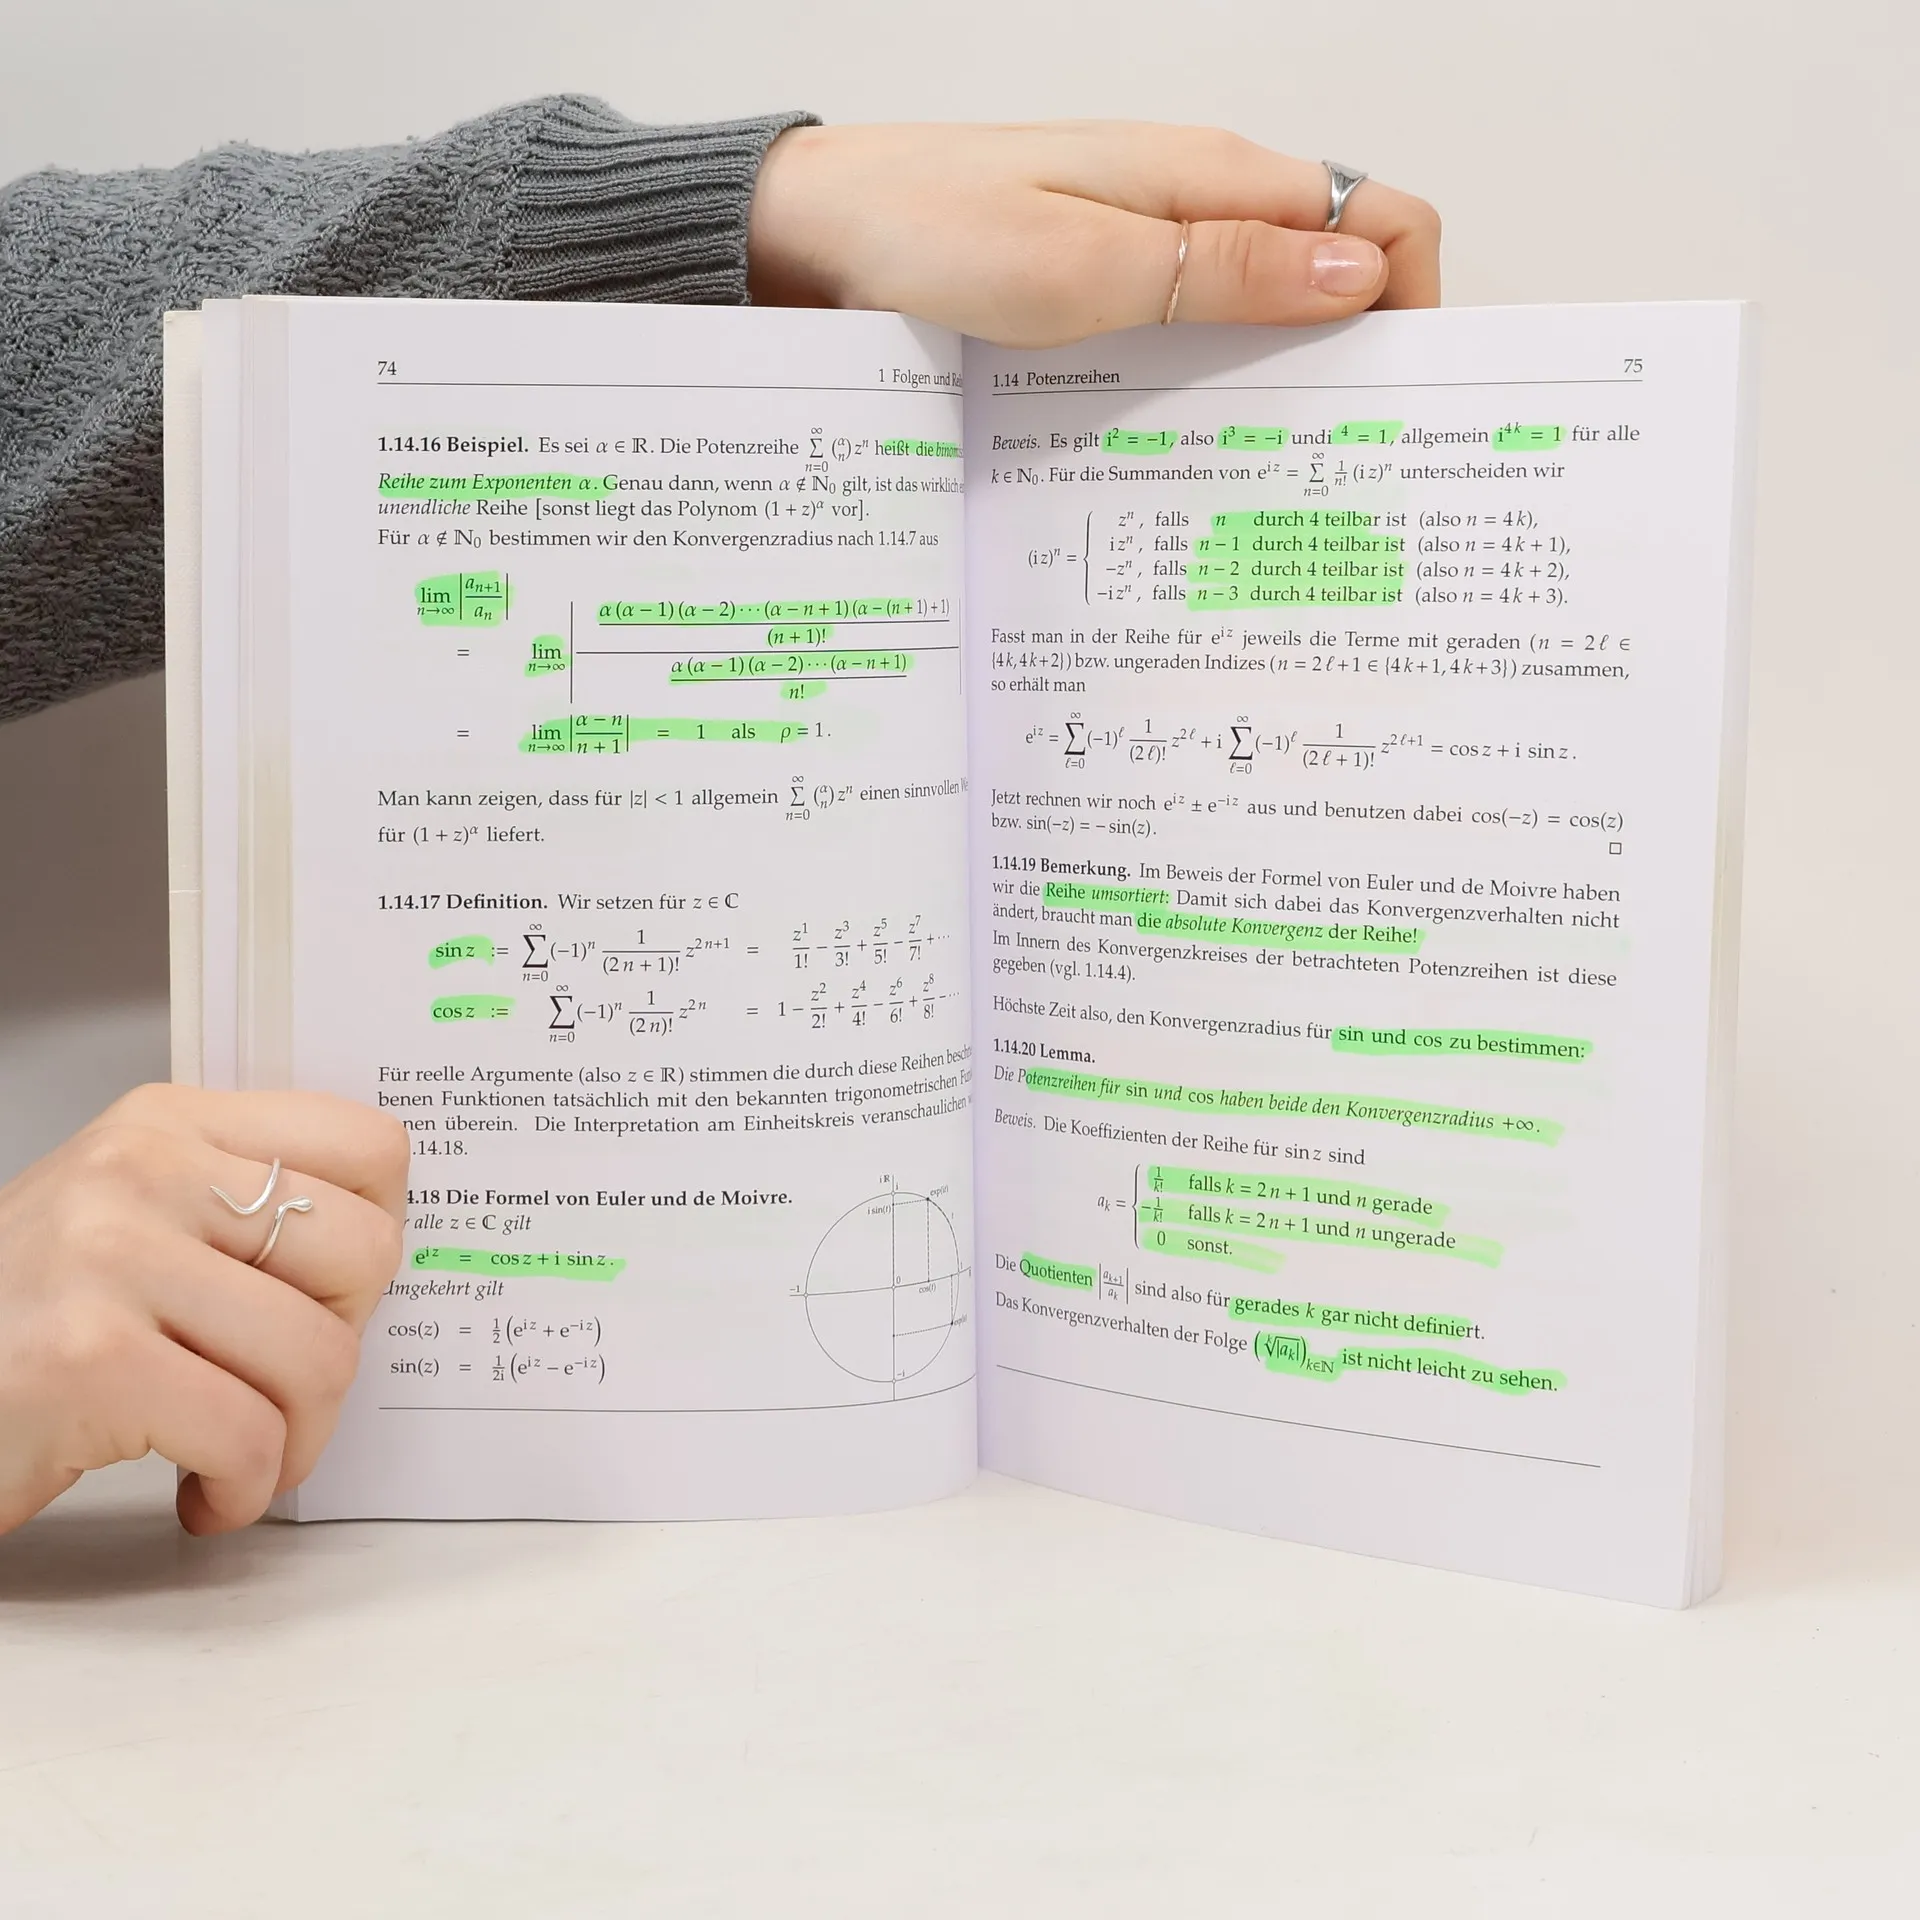 74
1 Folgen und
1.14.16 Beispiel. Es sei α ∈ ℝ. Die Potenzreihe ∑_{n=0}^{∞} (α über n) zⁿ heißt die
Reihe zum Exponenten α. Genau dann, wenn α ∉ ℕ₀ gilt, ist das wirklich
unendliche Reihe [sonst liegt das Polynom (1 + z)^α vor].
Für α ∉ ℕ₀ bestimmen wir den Konvergenzradius nach 1.14.7 aus
lim_{n→∞} |a_{n+1}/a_n|
= lim_{n→∞} |(α(α − 1)(α − 2)⋯(α − n + 1)(α − (n + 1) + 1)/(n + 1)!)/(α(α − 1)(α − 2)⋯(α − n + 1)/n!)|
= lim_{n→∞} |(α − n)/(n + 1)| = 1 als ρ = 1.
Man kann zeigen, dass für |z| < 1 allgemein ∑_{n=0}^{∞} (α über n) zⁿ einen sinnvollen
für (1 + z)^α liefert.
1.14.17 Definition. Wir setzen für z ∈ ℂ
sin z := ∑_{n=0}^{∞} (−1)ⁿ 1/(2n + 1)! z^{2n+1} = z¹/1! − z³/3! + z⁵/5! − z⁷/7! + ⋯
cos z := ∑_{n=0}^{∞} (−1)ⁿ 1/(2n)! z^{2n} = 1 − z²/2! + z⁴/4! − z⁶/6! + z⁸/8! − ⋯
Für reelle Argumente (also z ∈ ℝ) stimmen die durch diese Reihen
benen Funktionen tatsächlich mit den bekannten trigonometrischen
nen überein. Die Interpretation am Einheitskreis veranschaulichen
.14.18.
4.18 Die Formel von Euler und de Moivre.
r alle z ∈ ℂ gilt
e^{iz} = cos z + i sin z.
Umgekehrt gilt
cos(z) = 1/2 (e^{iz} + e^{−iz})
sin(z) = 1/2i (e^{iz} − e^{−iz})
iℝ
i
exp(it)
i sin(t)
t
−1
0
cos(t)
1
−i
1.14 Potenzreihen
75
Beweis. Es gilt i² = −1, also i³ = −i undi ⁴ = 1, allgemein i^{4k} = 1 für alle
k ∈ ℕ₀. Für die Summanden von e^{iz} = ∑_{n=0}^{∞} 1/n! (iz)ⁿ unterscheiden wir
(iz)ⁿ = {
zⁿ, falls n durch 4 teilbar ist (also n = 4k),
izⁿ, falls n − 1 durch 4 teilbar ist (also n = 4k + 1),
−zⁿ, falls n − 2 durch 4 teilbar ist (also n = 4k + 2),
−izⁿ, falls n − 3 durch 4 teilbar ist (also n = 4k + 3).
Fasst man in der Reihe für e^{iz} jeweils die Terme mit geraden (n = 2ℓ ∈
{4k, 4k+2}) bzw. ungeraden Indizes (n = 2ℓ+1 ∈ {4k+1, 4k+3}) zusammen,
so erhält man
e^{iz} = ∑_{ℓ=0}^{∞} (−1)^ℓ 1/(2ℓ)! z^{2ℓ} + i ∑_{ℓ=0}^{∞} (−1)^ℓ 1/(2ℓ + 1)! z^{2ℓ+1} = cos z + i sin z.
Jetzt rechnen wir noch e^{iz} ± e^{−iz} aus und benutzen dabei cos(−z) = cos(z)
bzw. sin(−z) = − sin(z). □
1.14.19 Bemerkung. Im Beweis der Formel von Euler und de Moivre haben
wir die Reihe umsortiert: Damit sich dabei das Konvergenzverhalten nicht
ändert, braucht man die absolute Konvergenz der Reihe!
Im Innern des Konvergenzkreises der betrachteten Potenzreihen ist diese
gegeben (vgl. 1.14.4).
Höchste Zeit also, den Konvergenzradius für sin und cos zu bestimmen:
1.14.20 Lemma.
Die Potenzreihen für sin und cos haben beide den Konvergenzradius +∞.
Beweis. Die Koeffizienten der Reihe für sin z sind
a_k = {
1/k! falls k = 2n + 1 und n gerade
−1/k! falls k = 2n + 1 und n ungerade
0 sonst.
Die Quotienten |a_{k+1}/a_k| sind also für gerades k gar nicht definiert.
Das Konvergenzverhalten der Folge (ᵏ√|a_k|)_{k∈ℕ} ist nicht leicht zu sehen.